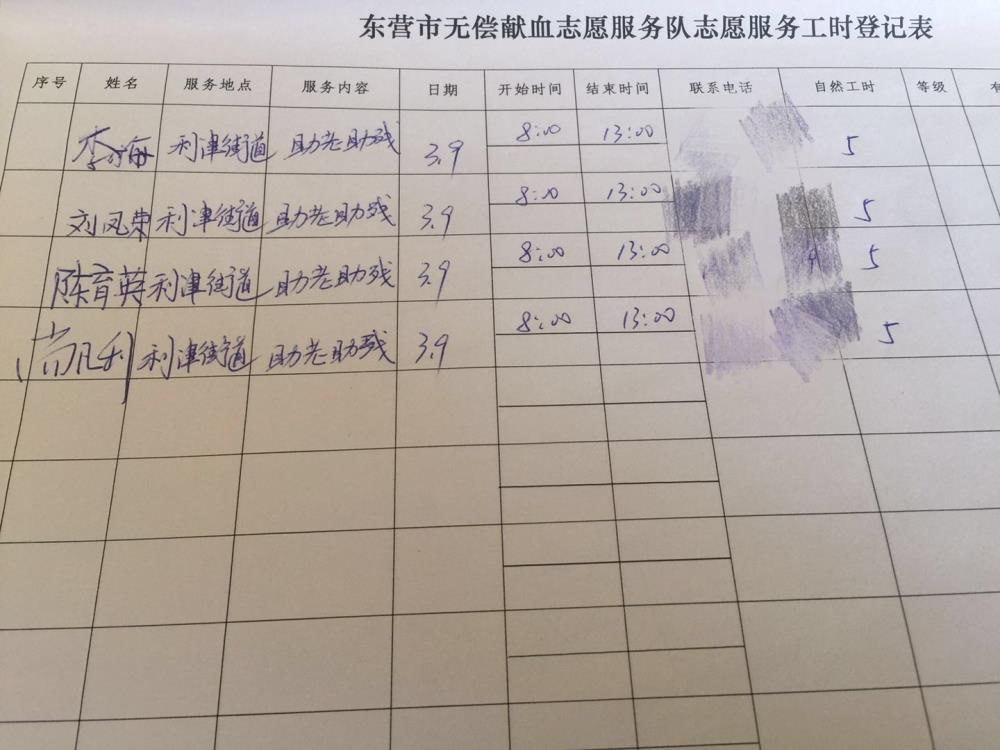 东营市无偿献血志愿服务队志愿服务工时登记表
序号 姓名 服务地点 服务内容 日期 开始时间 结束时间 联系电话 自然工时 等级
李 利津街道 助老助残 3.9 8:00 13:00 5
刘凤荣 利津街道 助老助残 3.9 8:00 13:00 5
陈育英 利津街道 助老助残 3.9 8:00 13:00 5
尚凡利 利津街道 助老助残 3.9 8:00 13:00 5